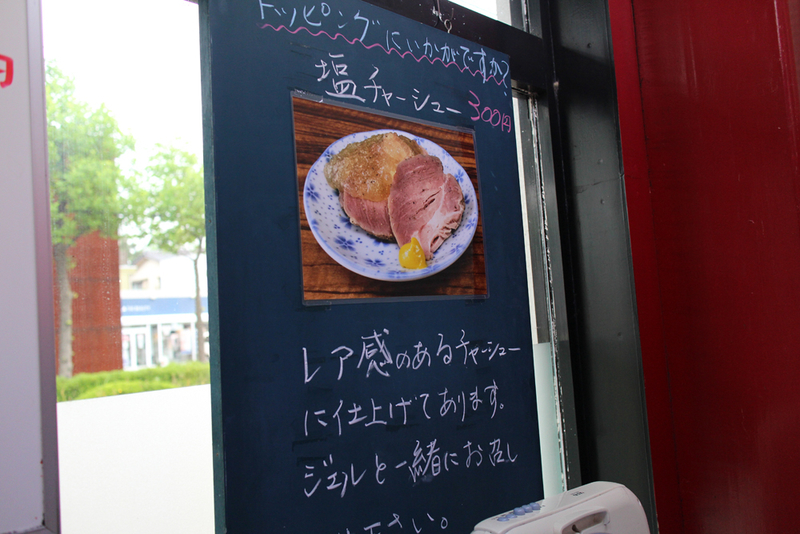 トッピングにいかがですか?
塩チャーシュー 300円
レア感のあるチャーシュー
に仕上げてあります。
ジェルと一緒にお召し
下さい。
円